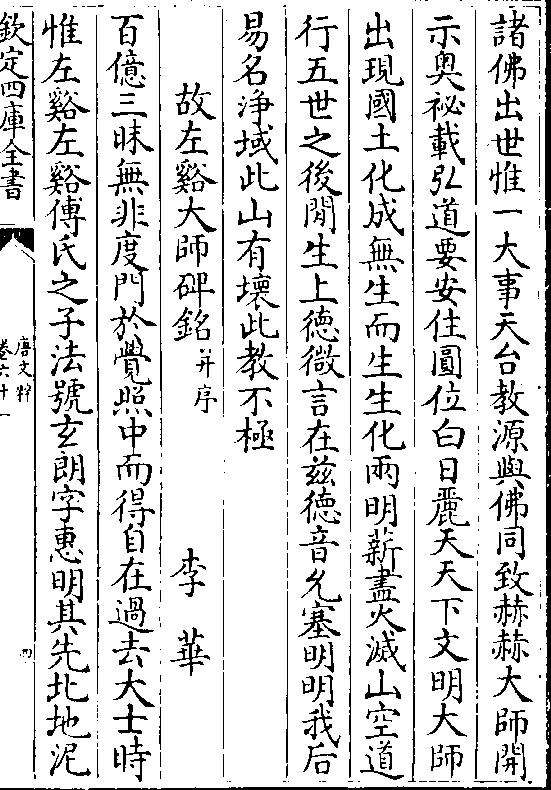 諸佛出世惟一大事天台教源與佛同致赫赫大師開
示奧祕載弘道要安住圓位白日麗天天下文明大師
出現國土化成無生而生生化兩明薪盡火滅山空道
行五世之後閒生上德微言在兹德音允塞明明我后
易名浄域此山有壞此教不極
故左谿大師碑銘并序
李華
百億三昧無非度門於覺照中而得自在過去大士時
惟左谿左谿傅氏之子法號玄朗字惠明其先北地泥
欽定四庫全書
唐文粹
卷六十一
四